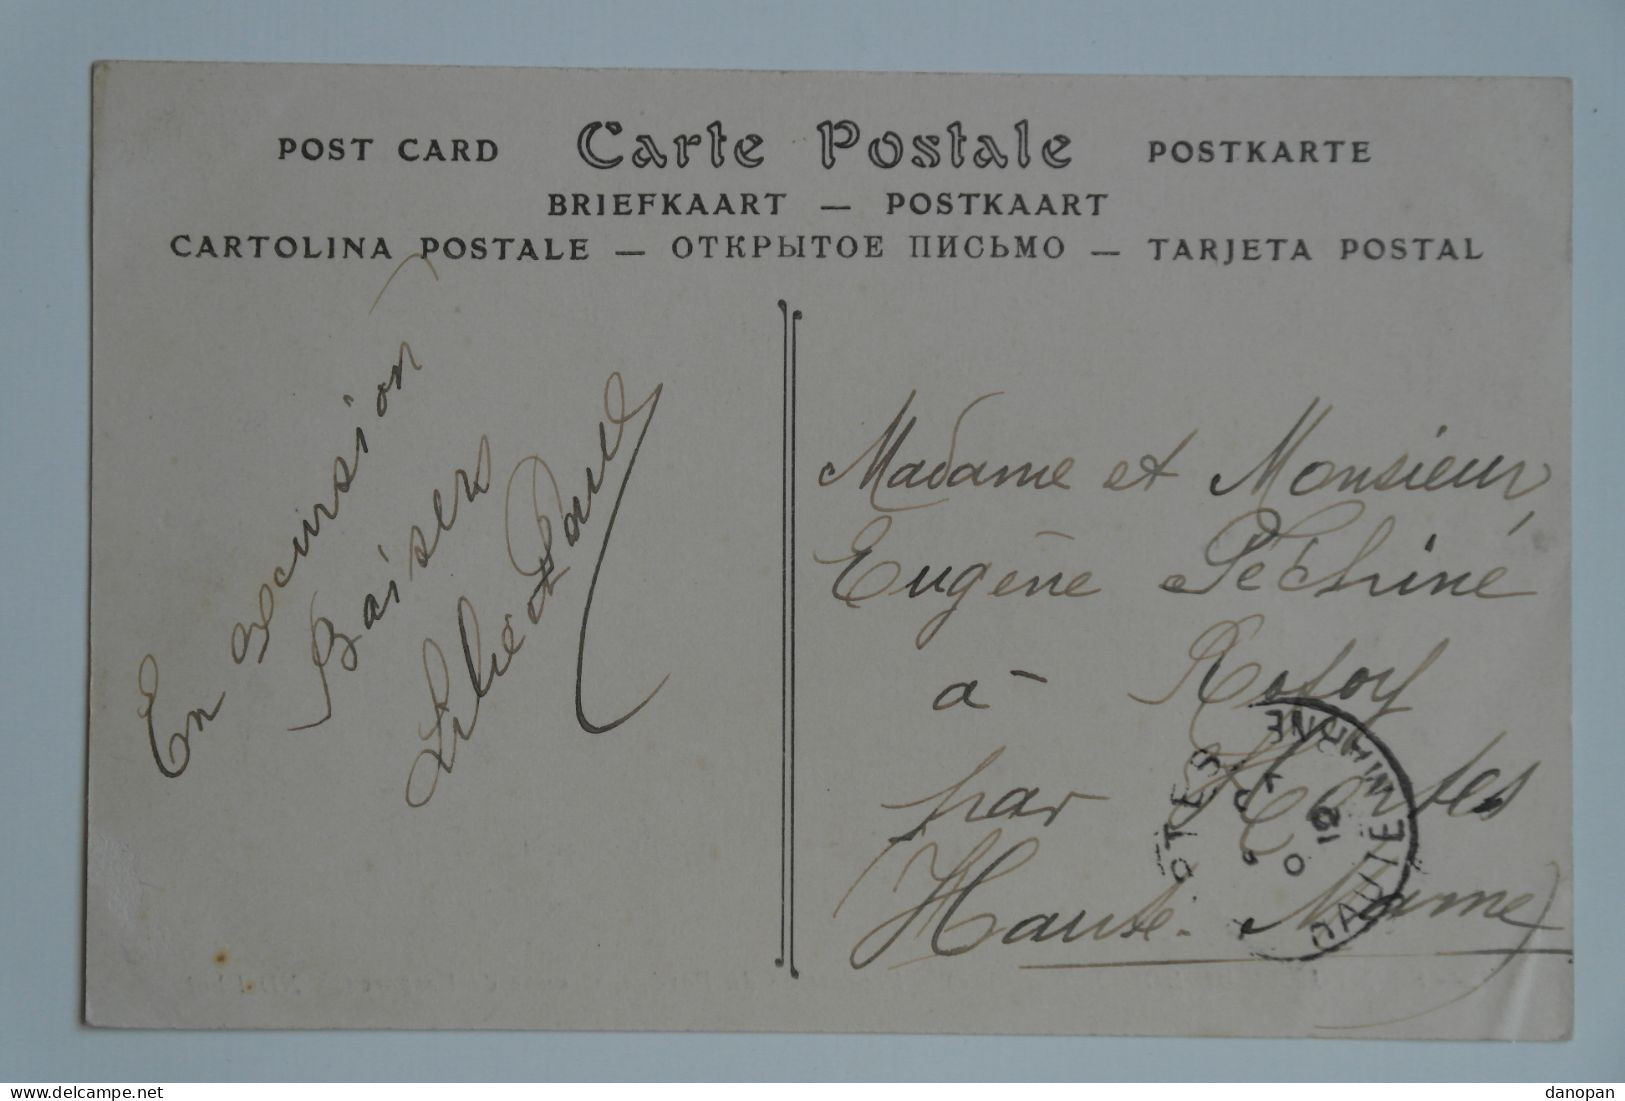 POST CARD Carte Postale POSTKARTE
BRIEFKAART — POSTKAART
CARTOLINA POSTALE — ОТКРЫТОЕ ПИСЬМО — TARJETA POSTAL
En excursion
Baisers
Lilie et Paul
Madame et Monsieur
Eugène Péchiné
à Rosoy
par Hortes
Haute-Marne
HAUTE MARNE
www.delcampe.net
danopan